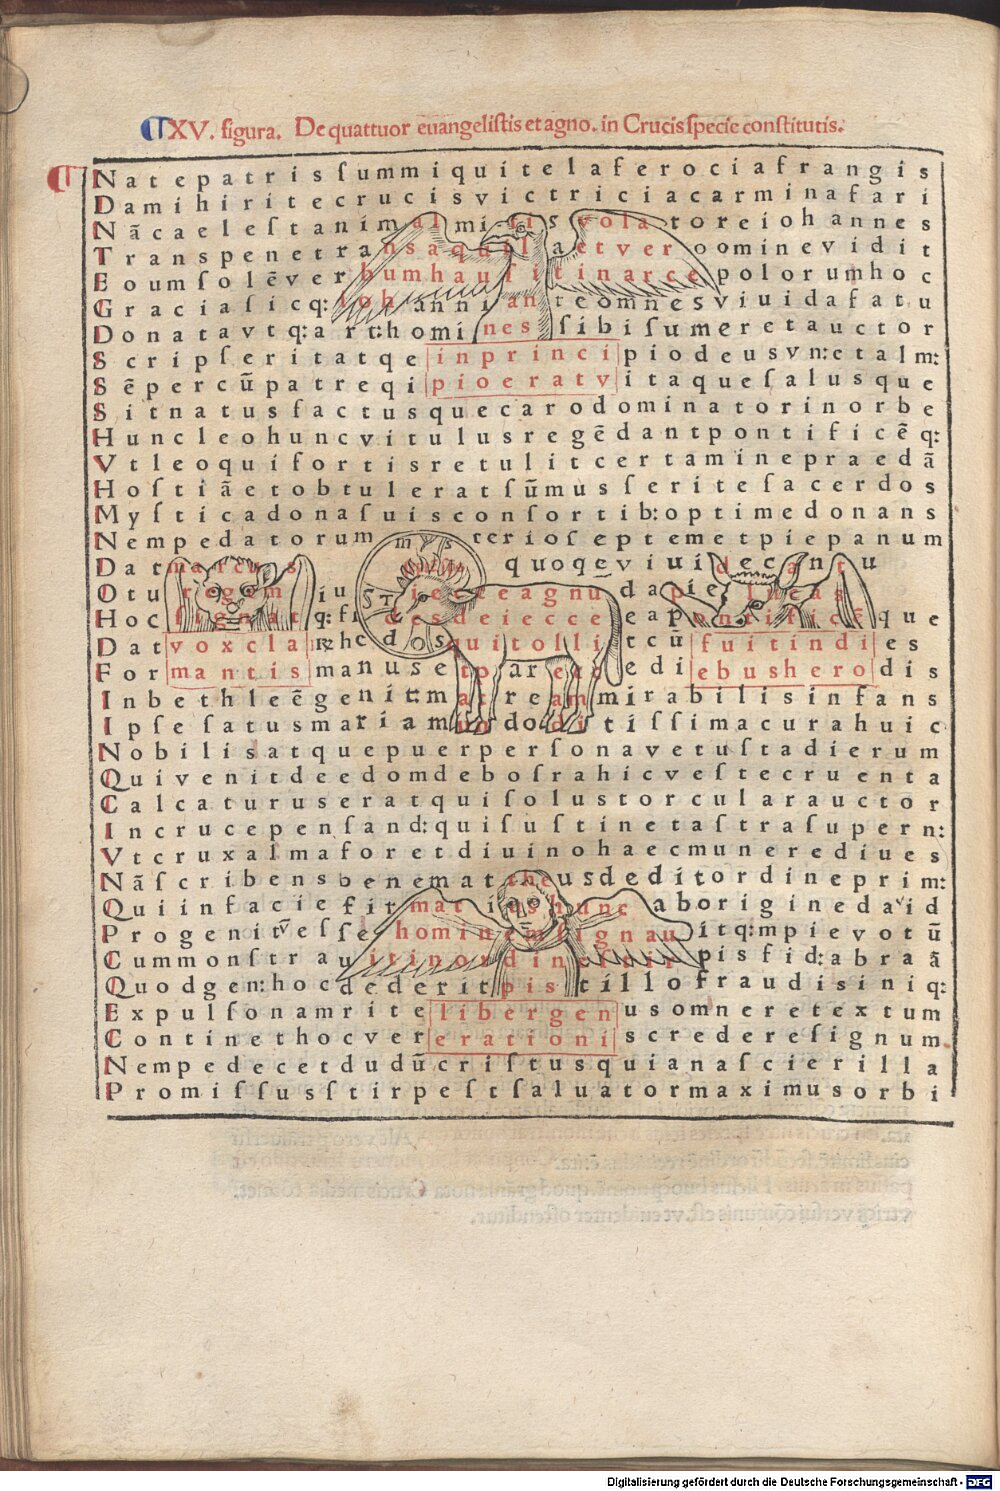 XV. figura. De quattuor euangelistis et agno. in Crucis specie constitutis.
N a t e p a t r i s ſ u m m i q u i t e l a f e r o c i a f r a n g i s
D a m i h i r i t e c r u c i s v i c t r i c i a c a r m i n a f a r i
N ã c a e l e ſ t a n i m a l m i ſ i s v o l a t o r e i o h a n n e s
T r a n s p e n e t r a n s a q u i l a e t v e r o o m i n e v i d i t
E o u m ſ o l ē v e r b u m h a u ſ i t i n a r c e p o l o r u m h o c
G r a c i a ſ i c q: i o h a n n i a n t e o m n e s v i u i d a f a t u
D o n a t a v t q: a r t: h o m i n e s ſ i b i ſ u m e r e t a u c t o r
S c r i p ſ e r i t a t q e i n p r i n c i p i o d e u s v n: e t a l m:
S ē p e r c ũ p a t r e q i p i o e r a t v i t a q u e ſ a l u s q u e
S i t n a t u s f a c t u s q u e c a r o d o m i n a t o r i n o r b e
H u n c l e o h u n c v i t u l u s r e g ē d a n t p o n t i f i c ē q:
V t l e o q u i f o r t i s r e t u l i t c e r t a m i n e p r a e d ã
H o ſ t i ã e t o b t u l e r a t ſ ũ m u s ſ e r i t e ſ a c e r d o s
M y ſ t i c a d o n a ſ u i s c o n ſ o r t i b: o p t i m e d o n a n s
N e m p e d a t o r u m m y s t e r i o ſ e p t e m e t p i e p a n u m
D a t m a r c u s q u o q e v i u i d e c a n t u
O t u r e g e m i u i e c c e a g n u d a p i e l u c a s
H o c ſ i g n a t q: f i S T d e s d e i e c c e e a p o n t i f i c ē q u e
D a t v o x c l a R h e d O S q u i t o l l i t c ũ f u i t i n d i e s
F o r m a n t i s m a n u s e t p a r e c c e d i e b u s h e r o d i s
I n b e t h l e ē g e n i t: m a t r e a m m i r a b i l i s i n f a n s
I p ſ e ſ a t u s m a r i a m u n d o d i t i ſ ſ i m a c u r a h u i c
N o b i l i s a t q u e p u e r p e r ſ o n a v e t u ſ t a d i e r u m
Q u i v e n i t d e e d o m d e b o ſ r a h i c v e ſ t e c r u e n t a
C a l c a t u r u s e r a t q u i ſ o l u s t o r c u l a r a u c t o r
I n c r u c e p e n ſ a n d: q u i ſ u ſ t i n e t a ſ t r a ſ u p e r n:
V t c r u x a l m a f o r e t d i u i n o h a e c m u n e r e d i u e s
N ã ſ c r i b e n s b e n e m a t t h e u s d e d i t o r d i n e p r i m:
Q u i i n f a c i e f i r m a t i u s h u n c a b o r i g i n e d a v i d
P r o g e n i t v e ſ ſ e h o m i n e m ſ i g n a u i t q: m p i e v o t ũ
C u m m o n ſ t r a u i t i n o r d i n e ſ t i r p i s f i d: a b r a ã
Q u o d g e n: h o c d e d e r i t p i s t i l l o f r a u d i s i n i q:
E x p u l ſ o n a m r i t e l i b e r g e n u s o m n e r e t e x t u m
C o n t i n e t h o c v e r e r a t i o n i s c r e d e r e ſ i g n u m
N e m p e d e c e t d u d ũ c r i ſ t u s q u i a n a ſ c i e r i l l a
P r o m i ſ ſ u s ſ t i r p e ſ t ſ a l u a t o r m a x i m u s o r b i
Digitalisierung gefördert durch die Deutsche Forschungsgemeinschaft - DFG